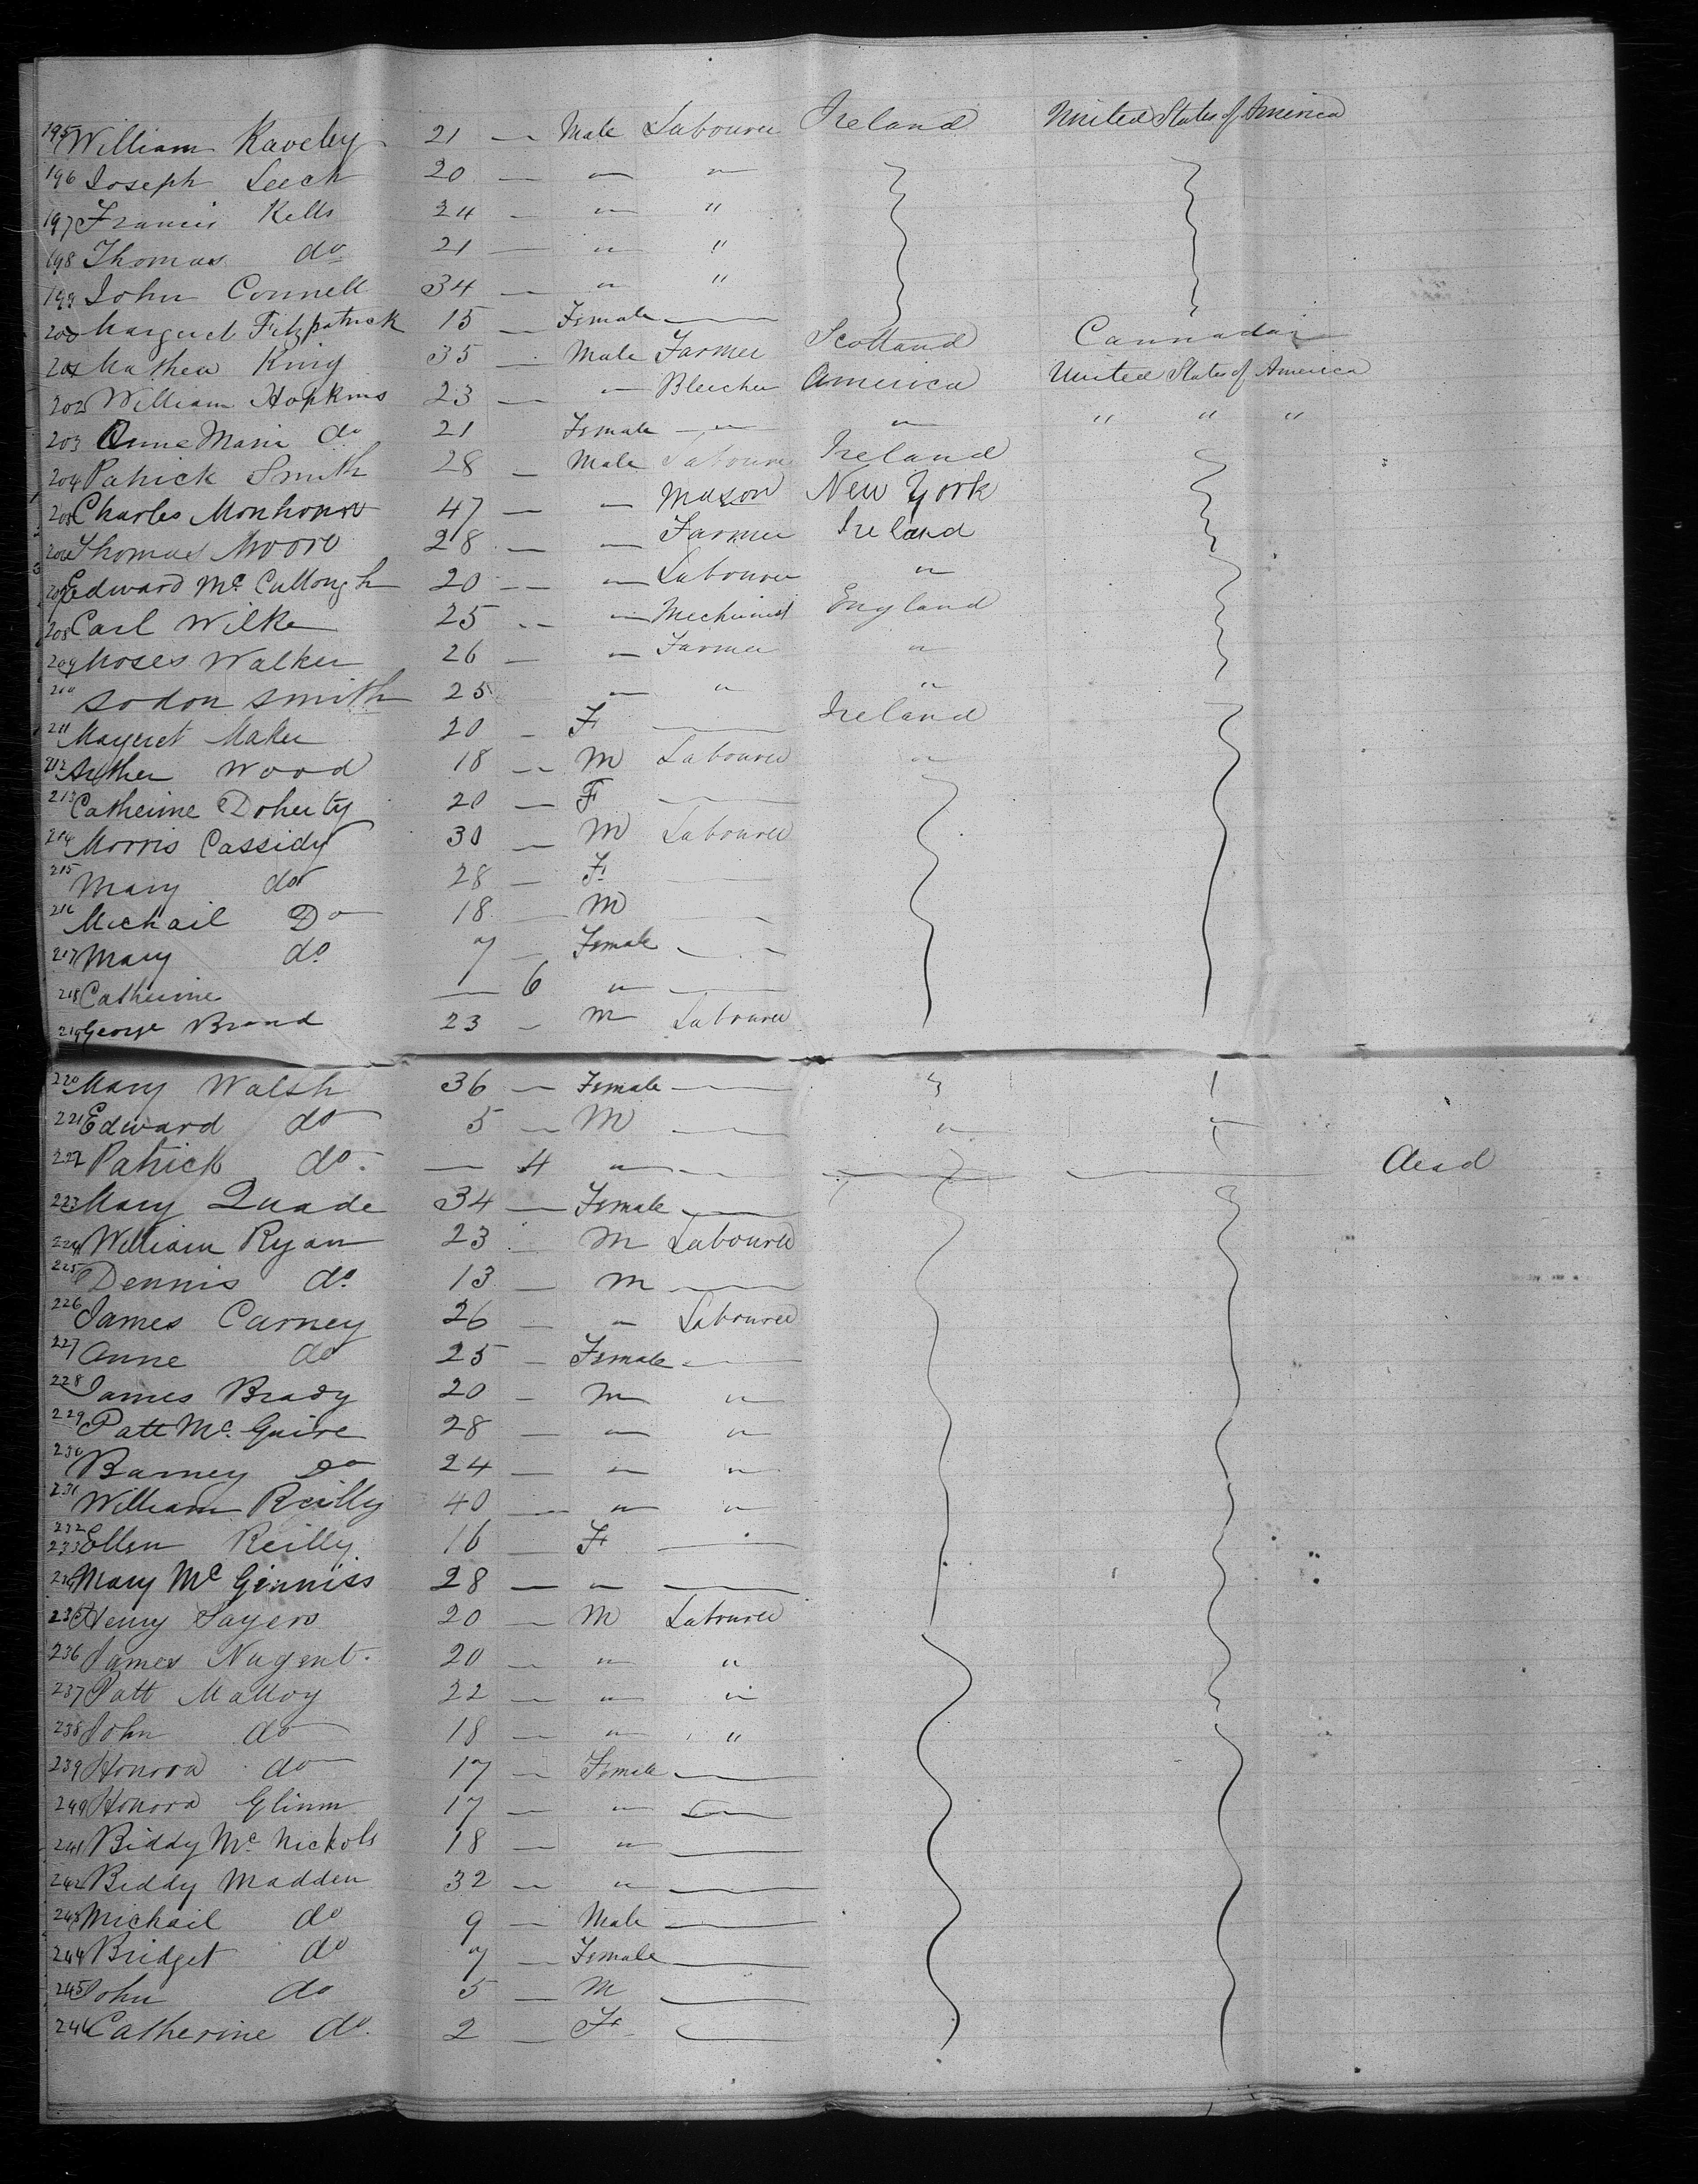 195 William Raveley 21 — Male Labourer Ireland United States of America
196 Joseph Leech 20 — " "
197 Francis Kells 24 — " "
198 Thomas do 21 — " "
199 John Connell 34 — " "
200 Margret Fitzpatrick 15 — Female —
201 Mathew King 35 — Male Farmer Scotland Cannada
202 William Hopkins 23 — " Bleecher America United States of America
203 Anne Maria do 21 Female — " " " " "
204 Patrick Smith 28 — Male Labourer Ireland
205 Charles 47 — " Mason New York
206 Thomas Moore 28 — " Farmer Ireland
207 Edward Mc Cullough 20 — " Labourer "
208 Carl Wilke 25 — " Mechinist England
209 Moses Walker 26 — " Farmer "
210 sodon smith 25 " " "
211 Margret Maher 20 — F — Ireland
212 Arther Wood 18 — M Labourer "
213 Catherine Doherty 20 — F —
214 Morris Cassidy 30 — M Labourer
215 Mary do 28 — F —
216 Michail Do 18 — M —
217 Mary do 7 — Female —
218 Catherine — 6 " —
219 George Brand 23 — M Labourer
220 Mary Walsh 36 — Female —
221 Edward do 5 — M — " "
222 Patrick do. — 4 " — dead
223 Mary Quade 34 — Female —
224 William Ryan 23 — M Labourer
225 Dennis do. 13 — M —
226 James Carney 26 — " Labourer
227 Anne do 25 — Female —
228 James Brady 20 — M "
229 Patt Mc. Guire 28 — " "
230 Barney Do 24 — " "
231 William Reilly 40 — " "
232
233 Ellen Reilly 16 — F —
234 Mary Mc Ginniss 28 — " —
235 Henry Sayers 20 — M Labourer
236 James Nugent. 20 — " "
237 Patt Malloy 22 — " "
238 John do 18 — " "
239 Honora do 17 — Female —
240 Honora Glinn 17 — " —
241 Biddy Mc. Nickols 18 — " —
242 Biddy Madden 32 — " —
243 Michail do 9 — Male —
244 Bridget do 7 — Female —
245 John do 5 — M —
246 Catherine do. 2 — F —